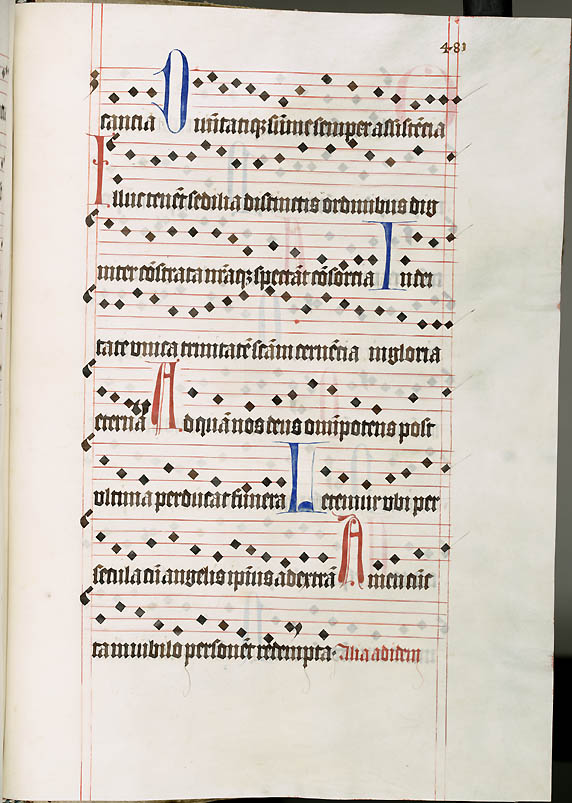 481
sancta O uñitatiqȝ sũme semper assistẽcia
Illuc tenẽt sedilia distinctis ordinibus dig
inter cõstrata nr̃aqȝ spectãt cõsorcia In dei
tate vnica trinitatẽ scãm cernẽcia in gloria
eterna Ad quã nos deus oĩm̃potens post
vltima perducat funera Letemur vbi per
secula cũ angelis ipsius ad extrã Amen cũc
ta in iubilo personẽt redempta. Alia ad idem